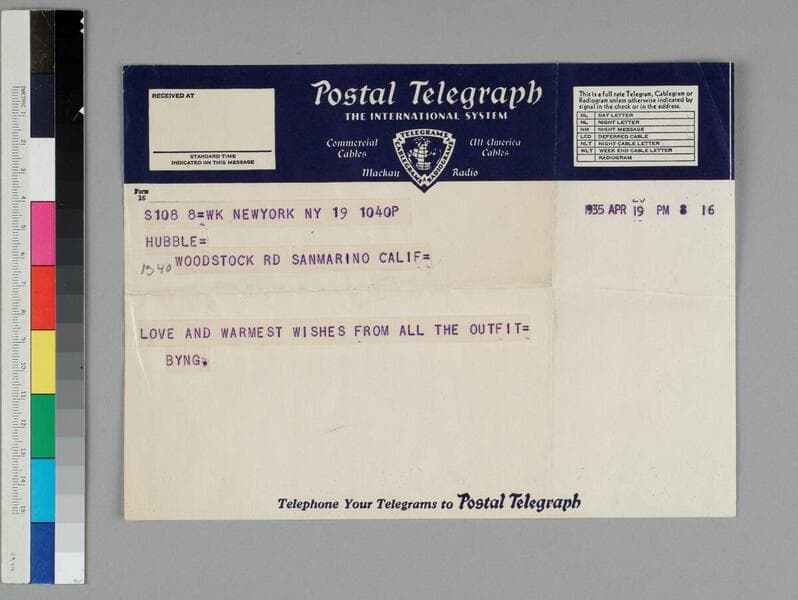 Postal Telegraph
THE INTERNATIONAL SYSTEM
Commercial Cables
All America Cables
TELEGRAMS
Mackay Radio
RECEIVED AT
STANDARD TIME
INDICATED ON THIS MESSAGE
This is a full rate Telegram, Cablegram or
Radiogram unless otherwise indicated by
signal in the check or in the address.
DL DAY LETTER
NL NIGHT LETTER
NM NIGHT MESSAGE
LCO DEFERRED CABLE
NLT NIGHT CABLE LETTER
WLT WEEK END CABLE LETTER
RADIOGRAM
Form
16
S108 8=WK NEWYORK NY 19 1040P
1935 APR 19 PM 8 16
HUBBLE=
1340 WOODSTOCK RD SANMARINO CALIF=
LOVE AND WARMEST WISHES FROM ALL THE OUTFIT=
BYNG.
Telephone Your Telegrams to Postal Telegraph